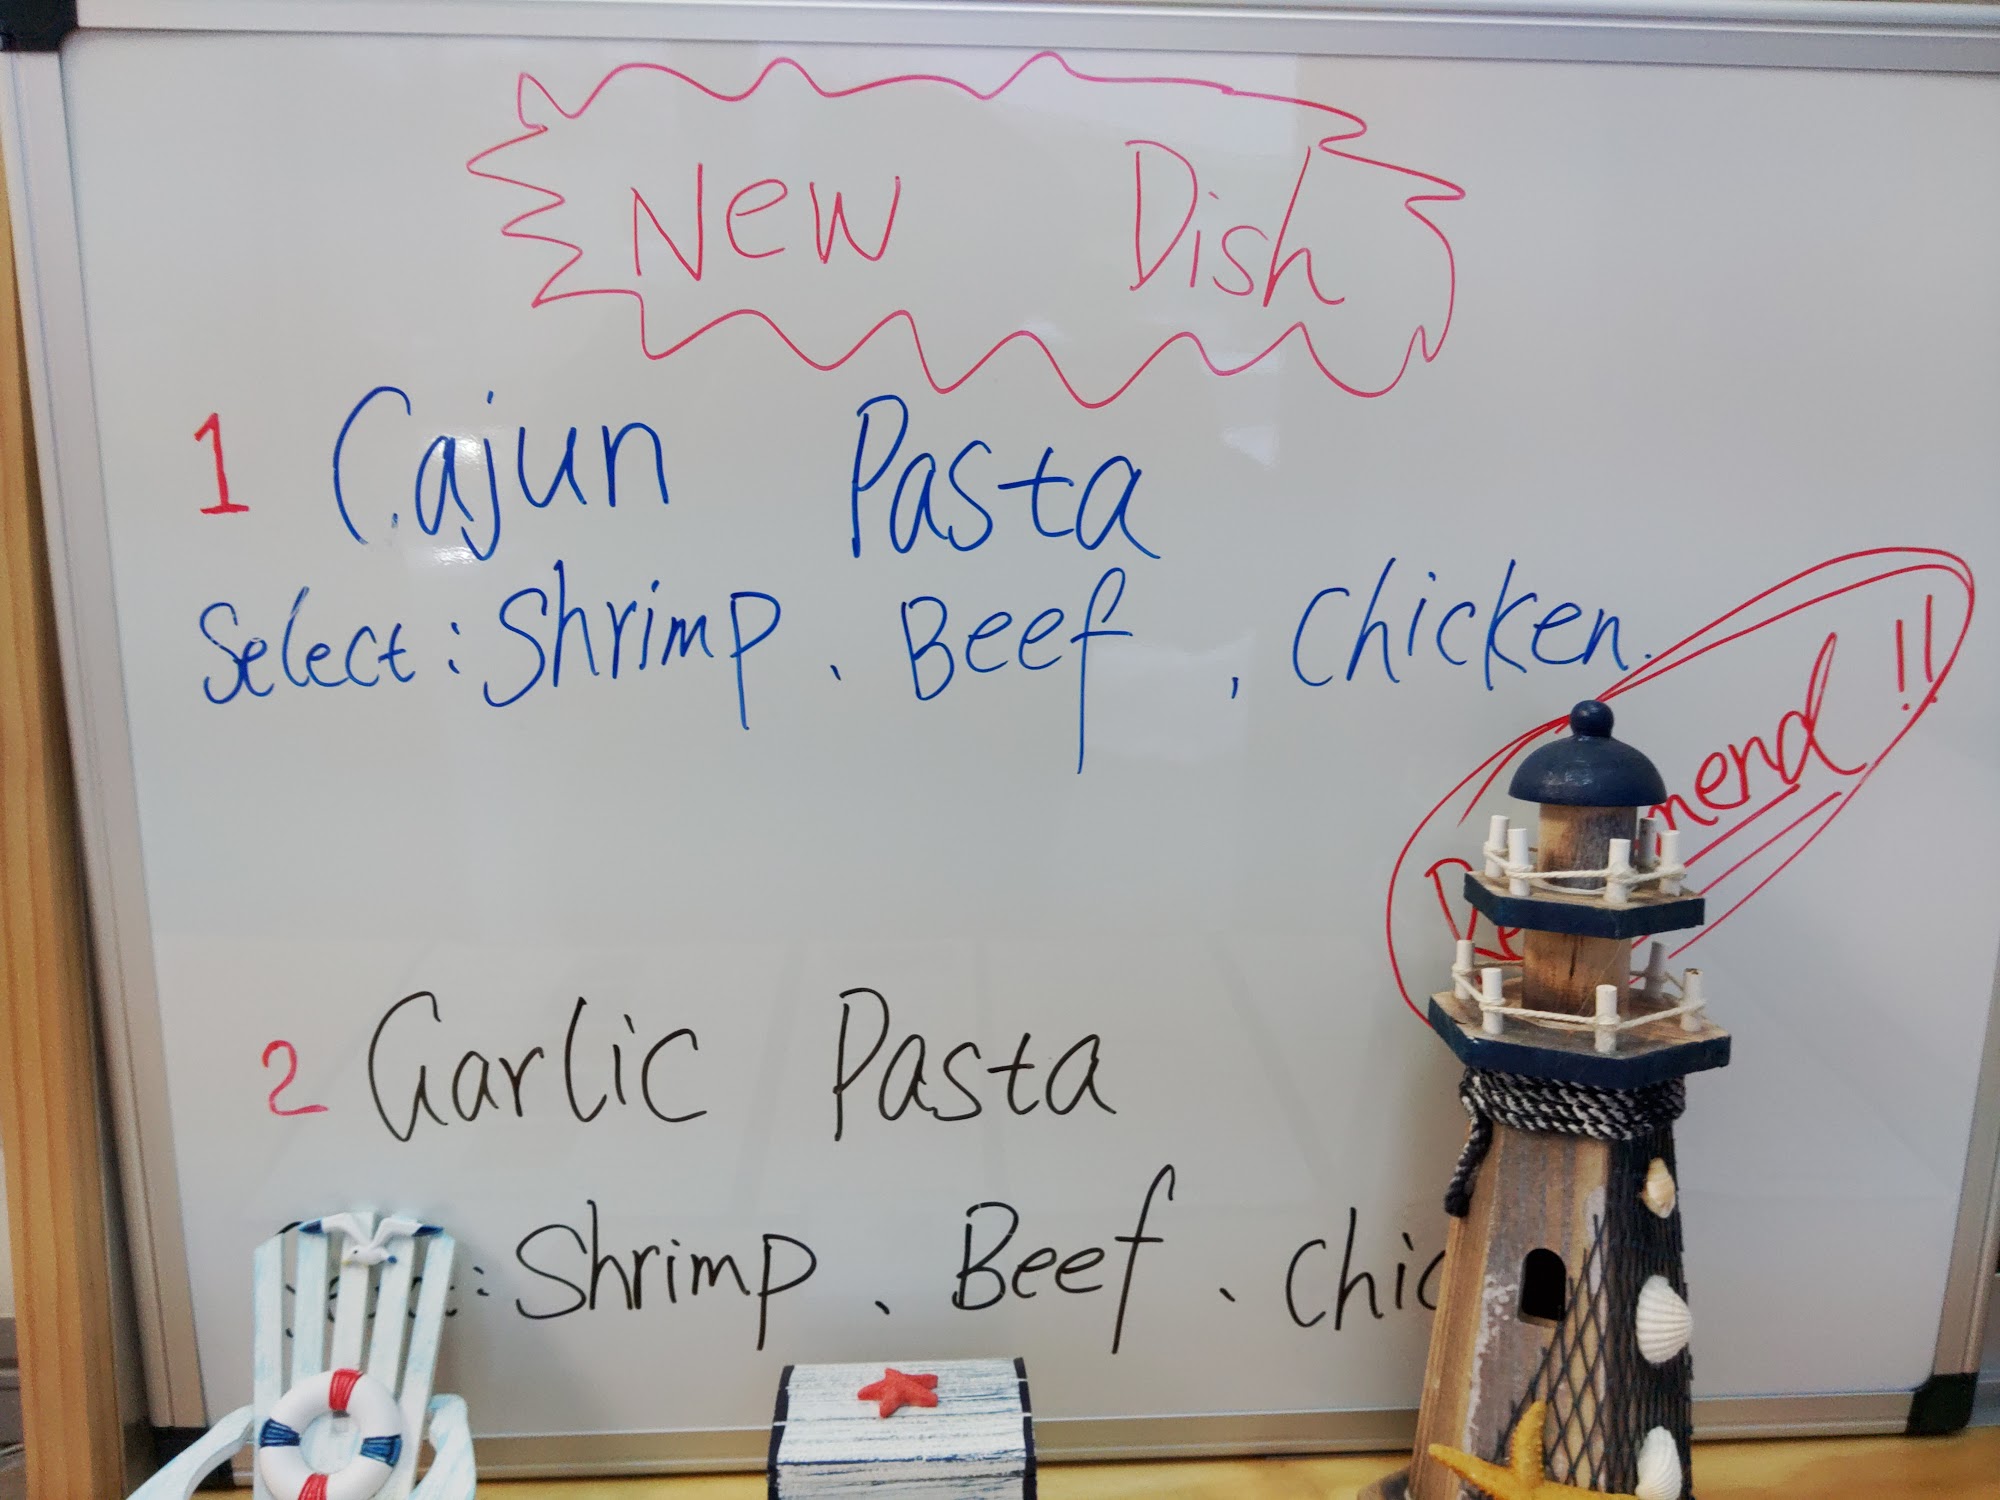 New Dish
1 Cajun Pasta
Select: Shrimp、Beef, Chicken.
!!
2 Garlic Pasta
: Shrimp、Beef、